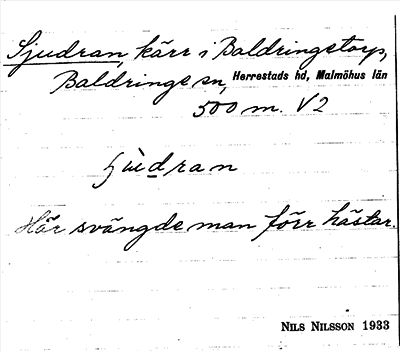 Sjudran, kärr i Baldringetorp,
Baldringe sn, Herrestads hd, Malmöhus län
500 m. V2
ʃu̇̀dran
Här svängde man förr hästar.
NILS NILSSON 1933